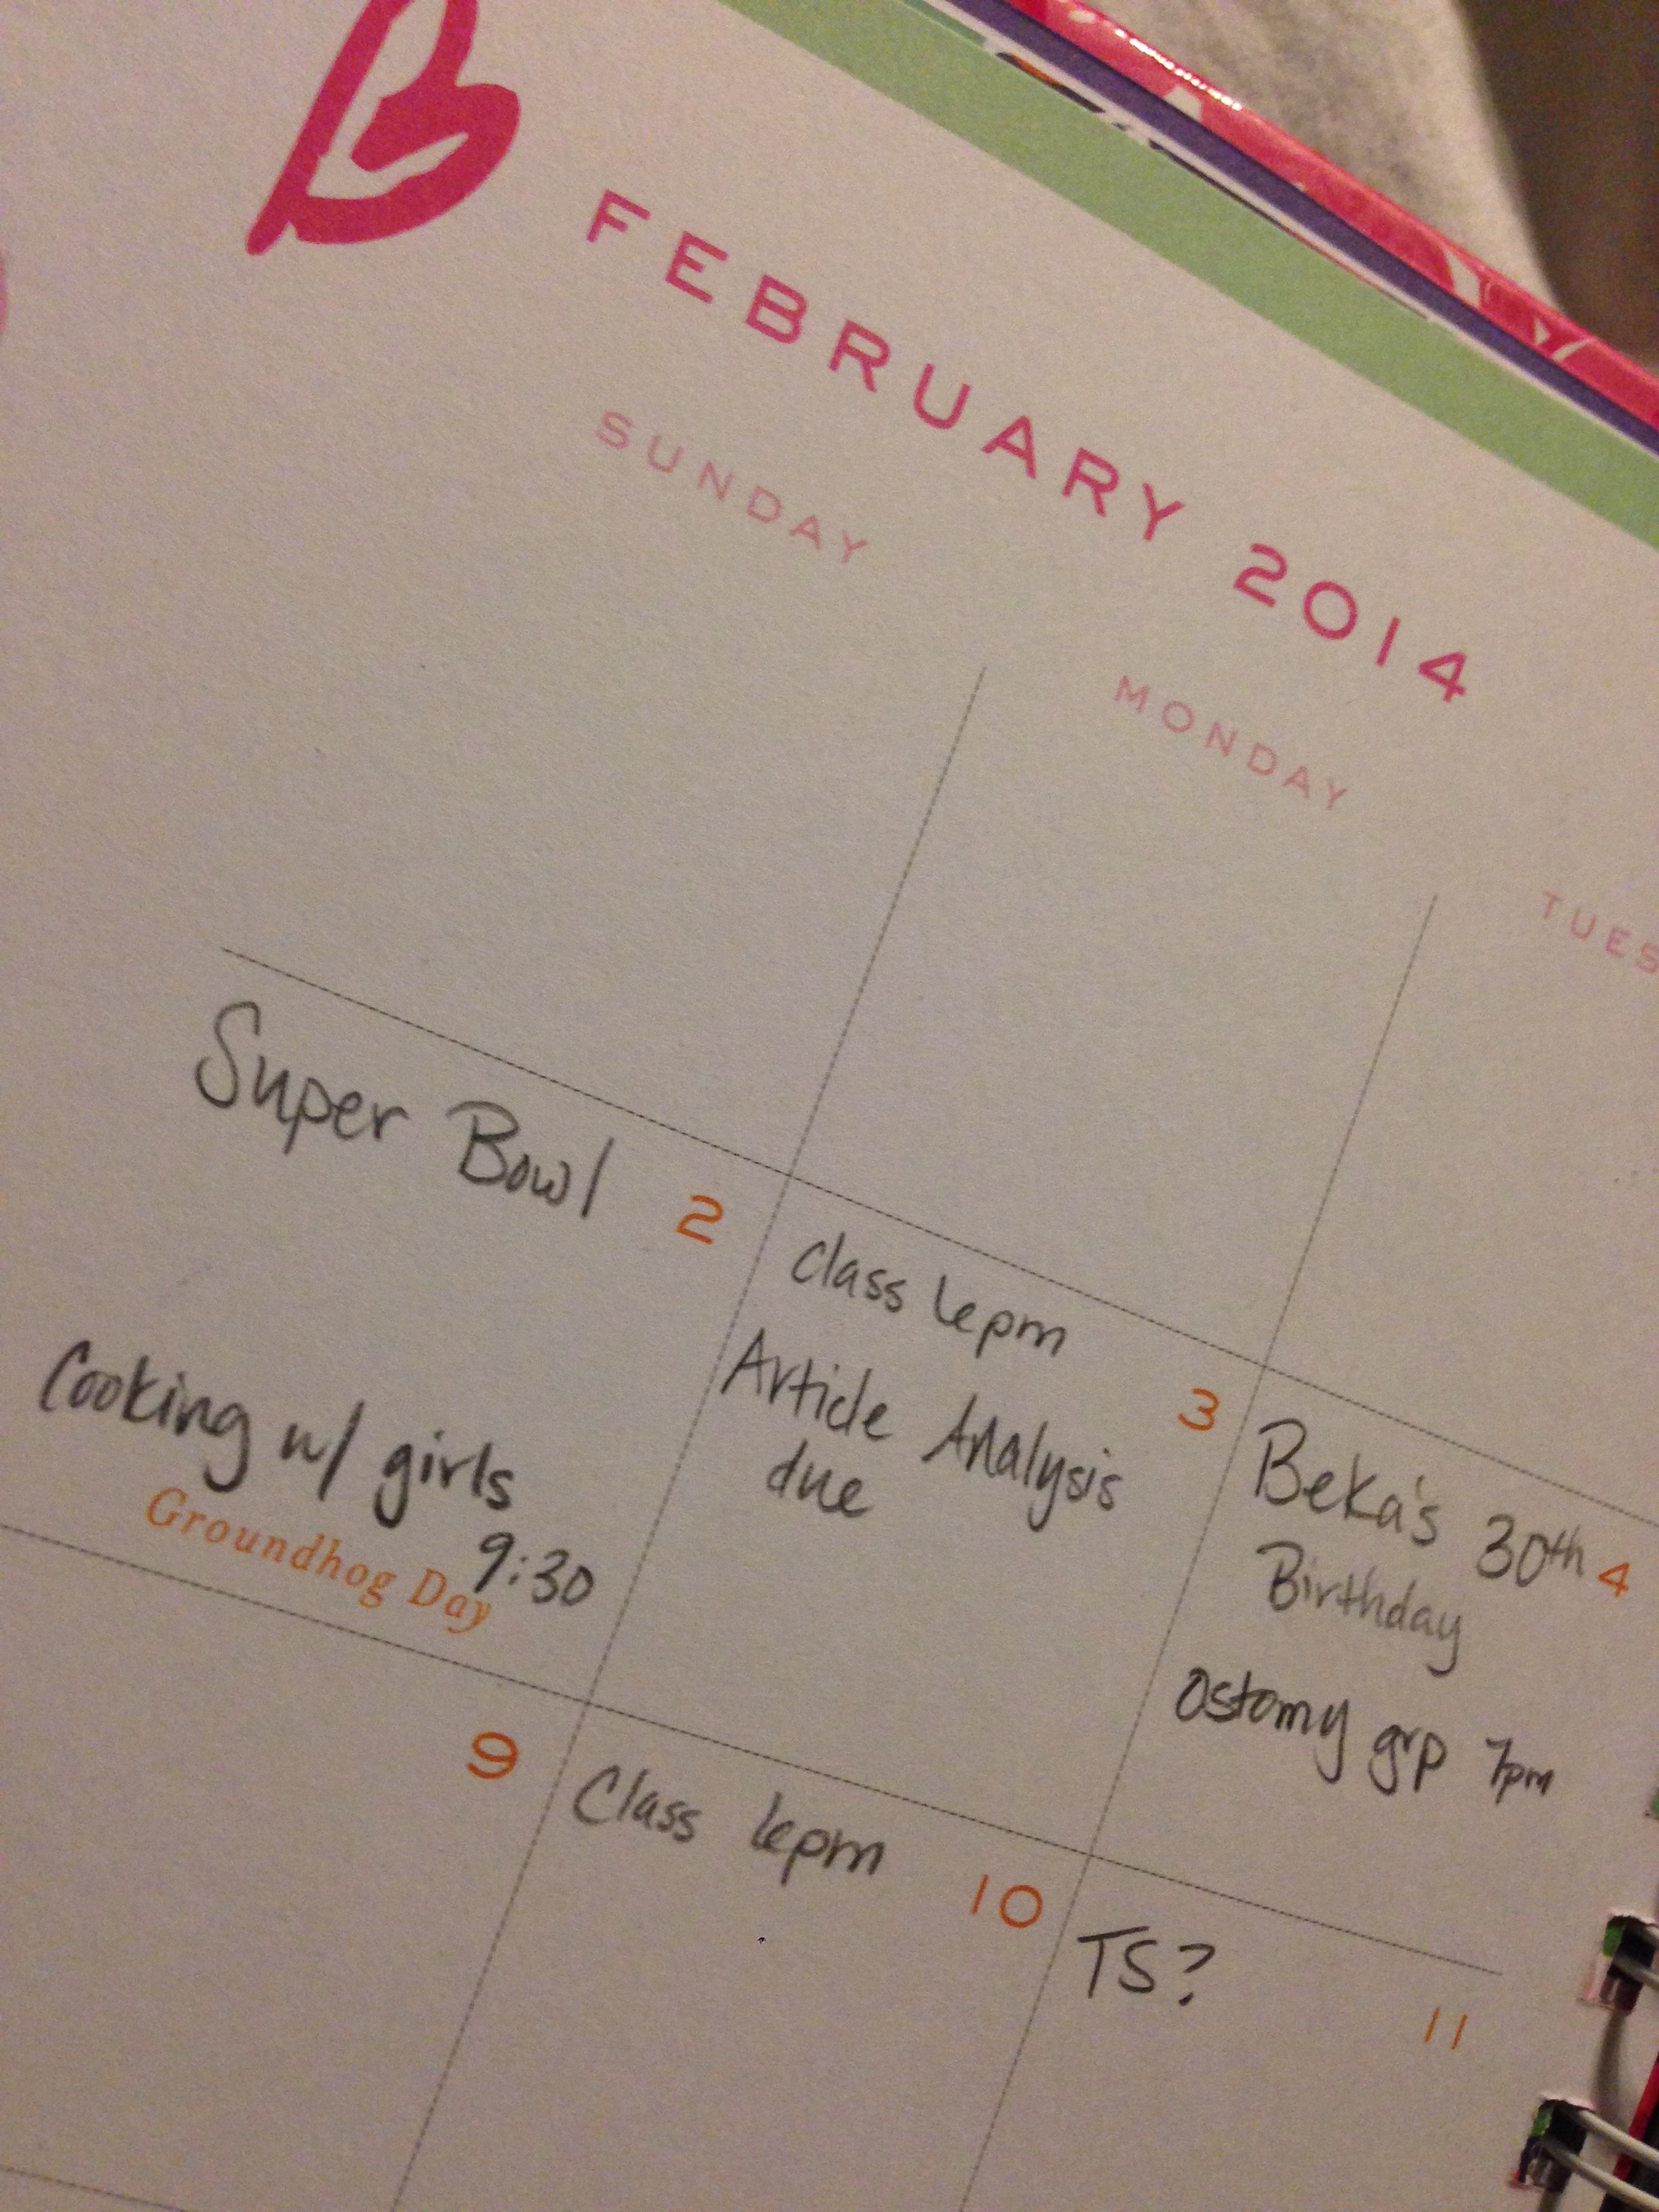 B
FEBRUARY 2014
SUNDAY
MONDAY
TUES
Super Bowl
2
Cooking w/ girls
9:30
Groundhog Day
Class 6pm
3
Article Analysis
due
Beka's 30th
4
Birthday
Ostomy grp 7pm
9
Class 6pm
10
TS?
11